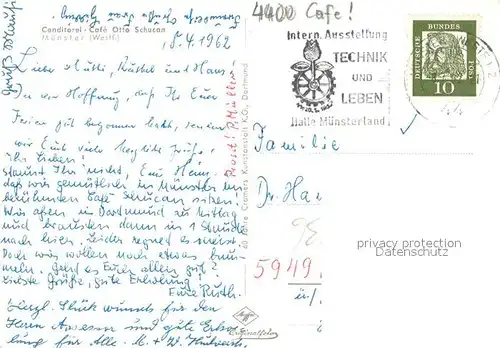 4400 Cafe!
Conditorei - Café Otto Schucan
Münster (Westf.)
15.4.1962
Liebe Mutti, Rüthel und Hans
In der Hoffnung, daß Ihr Eure
Ferien gut begonnen habt, senden
wir Euch viele herzliche Grüße,
Ihr Lieben!
staunt Ihr nicht, Eure Hans,
daß wir gemütlich in Münster im
berühmten Café Schucan sitzen.
Wir aßen in Dortmund zu Mittag
und brausten dann in 1 Stunde
nach hier. Leider regnet es meist.
Doch wir wollen noch etwas
Geht es Euch allen gut?
Liebste Grüße, gute Erholung!
Eure Ruth.
Herzl. Glückwunsch für den
Herrn Assessor und gute Erho-
lung für Alle.
Prosit! P. Müller
60 Jahre Cramers Kunstanstalt K.G., Dortmund
Intern. Ausstellung
TECHNIK
UND
LEBEN
Halle Münsterland
DEUTSCHE
BUNDES
POST
10
Familie
Dr. Ha
5949
privacy protection
Datenschutz
Agfa
Originalfoto